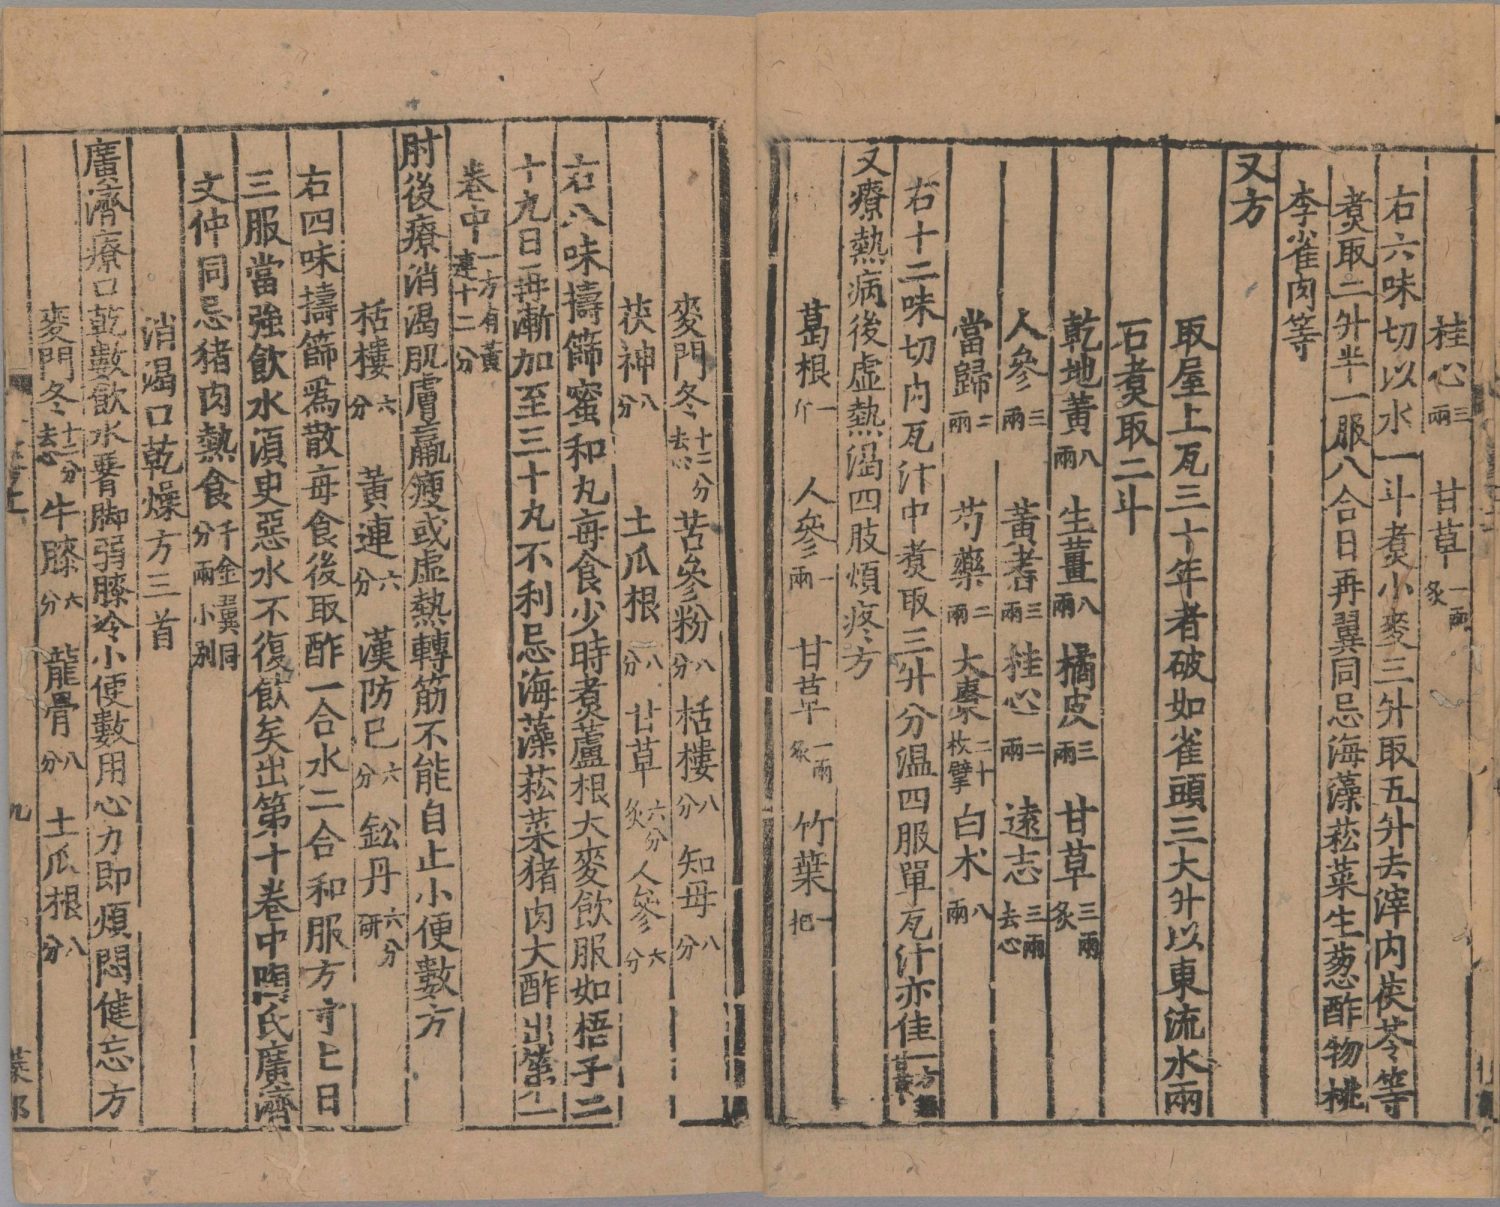 桂心三兩 甘草一兩炙
右六味切以水一斗煑小麥三升取五升去滓内茯苓等
煑取二升半一服八合日再翼同忌海藻菘菜生葱酢物桃
李雀肉等
又方
取屋上瓦三十年者破如雀頭三大升以東流水兩
石煑取二斗
乾地黃八兩 生薑八兩 橘皮三兩 甘草三兩炙
人參三兩 黃耆三兩 桂心二兩 遠志三兩去心
當歸二兩 芍藥二兩 大棗二十枚擘 白朮八兩
右十二味切内瓦汁中煑取三升分温四服單瓦汁亦佳一方
又療熱病後虛熱渴四肢煩疼方
葛根一斤 人參一兩 甘草一兩炙 竹葉一把
麥門冬十二分去心 苦參粉八分 栝樓八分 知母八分
茯神八分 土瓜根八分 甘草六分炙 人參六分
右八味擣篩蜜和丸每食少時煑蘆根大麥飲服如梧子二
十丸日再漸加至三十丸不利忌海藻菘菜猪肉大酢出第一
卷中一方有黃連十二分
肘後療消渴肌膚羸瘦或虛熱轉筋不能自止小便數方
栝樓六分 黃連六分 漢防已六分 鈆丹六分研
右四味擣篩爲散每食後取酢一合水二合和服方寸匕日
三服當強飲水湏史惡水不復飲矣出第十卷中陶氏廣濟
文仲同忌猪肉熱食千金翼同分兩小別
消渴口乾燥方三首
廣濟療口乾數飲水腰脚弱膝冷小便數用心力即煩悶健忘方
麥門冬十二分去心 牛膝六分 龍骨八分 土瓜根八分
九